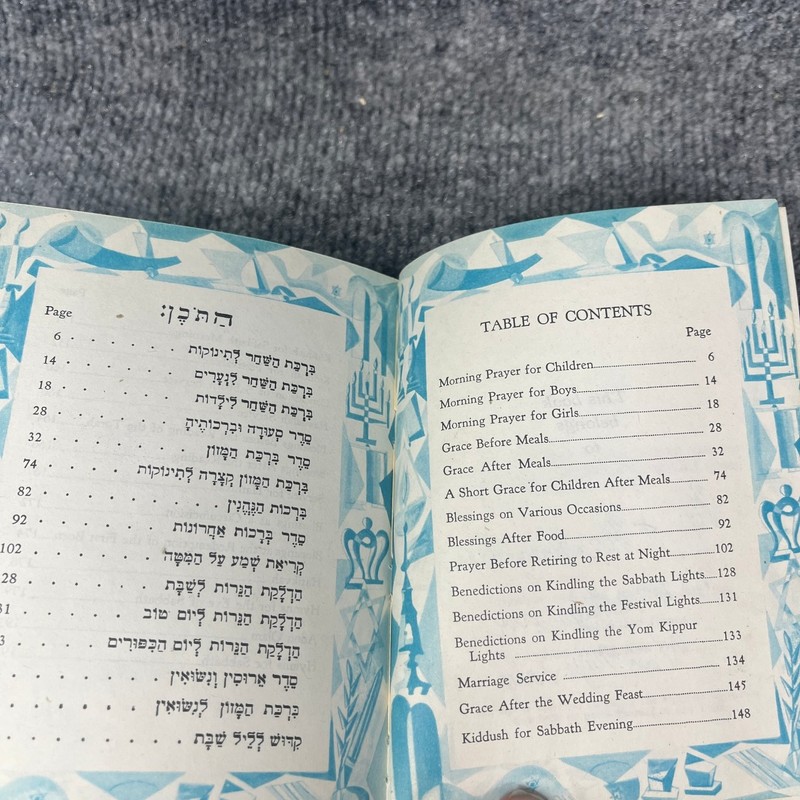 הַתֹּכֶן:
Page
בִּרְכַּת הַשַּׁחַר לְתִינוֹקוֹת 6
בִּרְכַּת הַשַּׁחַר לִנְעָרִים 14
בִּרְכַּת הַשַּׁחַר לִילָדוֹת 18
סֵדֶר סְעוּדָה וּבִרְכוֹתֶיהָ 28
סֵדֶר בִּרְכַּת הַמָּזוֹן 32
בִּרְכַּת הַמָּזוֹן קְצָרָה לְתִינוֹקוֹת 74
בִּרְכוֹת הַנֶּהֱנִין 82
סֵדֶר בְּרָכוֹת אַחֲרוֹנוֹת 92
קְרִיאַת שְׁמַע עַל הַמִּטָּה 102
הַדְלָקַת הַנֵּרוֹת לְשַׁבָּת 28
הַדְלָקַת הַנֵּרוֹת לְיוֹם טוֹב 31
הַדְלָקַת הַנֵּרוֹת לְיוֹם הַכִּפּוּרִים 3
סֵדֶר אֵרוּסִין וְנִשּׂוּאִין
בִּרְכַּת הַמָּזוֹן לְנִשּׂוּאִין
קִדּוּשׁ לְלֵיל שַׁבָּת
TABLE OF CONTENTS
Page
Morning Prayer for Children 6
Morning Prayer for Boys 14
Morning Prayer for Girls 18
Grace Before Meals 28
Grace After Meals 32
A Short Grace for Children After Meals 74
Blessings on Various Occasions 82
Blessings After Food 92
Prayer Before Retiring to Rest at Night 102
Benedictions on Kindling the Sabbath Lights 128
Benedictions on Kindling the Festival Lights 131
Benedictions on Kindling the Yom Kippur
Lights 133
Marriage Service 134
Grace After the Wedding Feast 145
Kiddush for Sabbath Evening 148